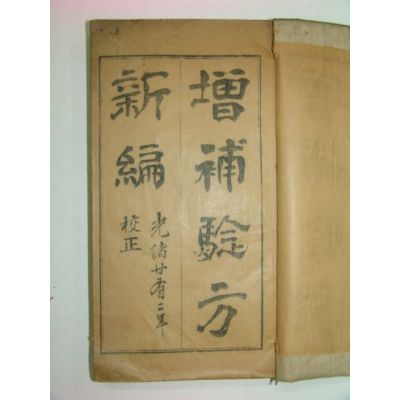 增補騐方
新編
光緒廿有二年
校正